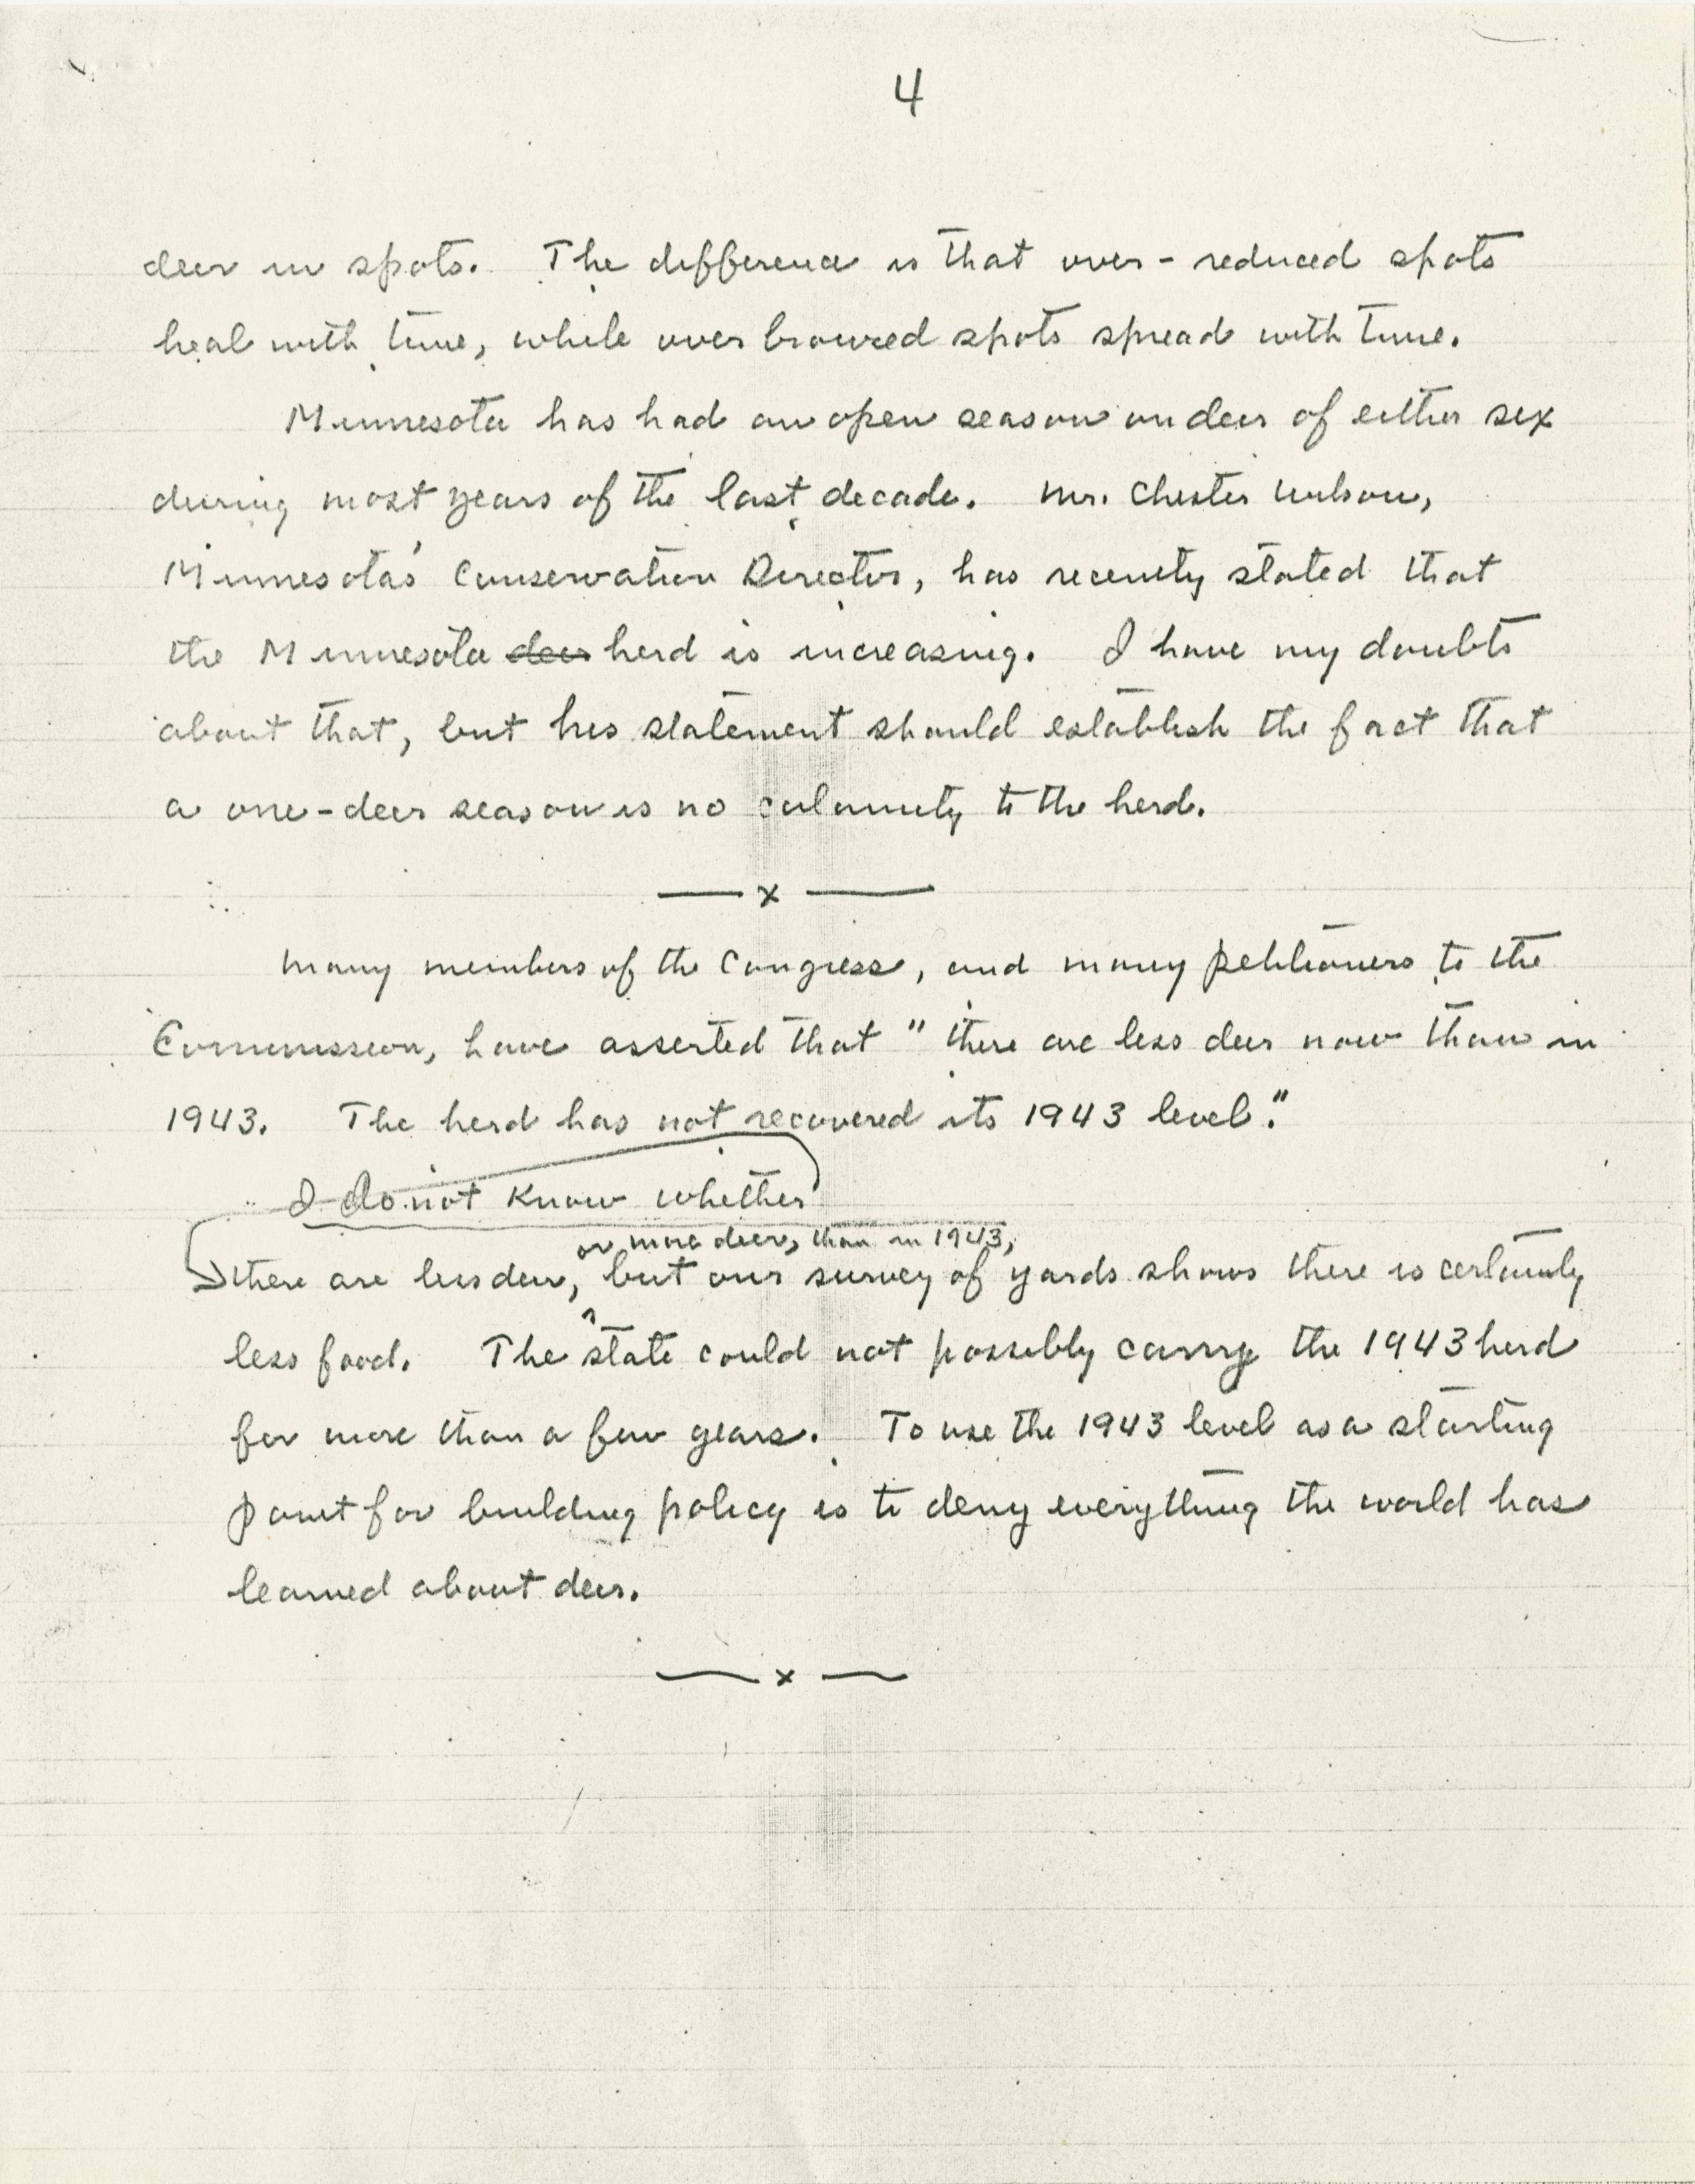 4
deer in spots. The difference is that over-reduced spots
heal with time, while over browsed spots spread with time.
Minnesota has had an open season on deer of either sex
during most years of the last decade. Mr. Chester Wilson,
Minnesota's Conservation Director, has recently stated that
the Minnesota deer herd is increasing. I have my doubts
about that, but his statement should establish the fact that
a one-deer season is no calamity to the herd.
— x —
Many members of the Congress, and many petitioners to the
Commission, have asserted that "there are less deer now than in
1943. The herd has not recovered its 1943 level."
I do not know whether
or more deer, than in 1943,
there are less deer, but our survey of yards shows there is certainly
less food. The state could not possibly carry the 1943 herd
for more than a few years. To use the 1943 level as a starting
point for building policy is to deny everything the world has
learned about deer.
— x —